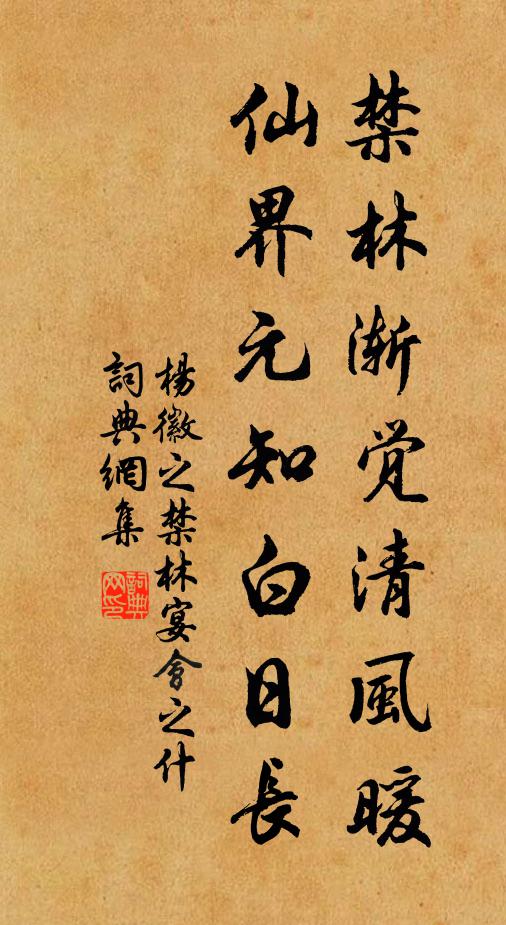 禁林渐觉清風暖
仙界元知白日長
楊徽之禁林宴會之什
詞典網集
詞典网印